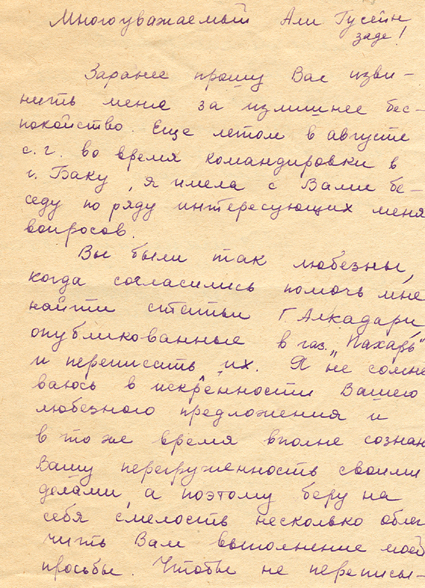 Многоуважаемый Али Гусейн
заде!
Заранее прошу Вас изви-
нить меня за излишнее бес-
покойство. Еще летом в августе
с.г. во время командировки в
г. Баку, я имела с Вами бе-
седу по ряду интересующих меня
вопросов.
Вы были так любезны,
когда согласились помочь мне
найти статьи Г Алкадари,
опубликованные в газ. "Пахарь"
и переписать их. Я не сомне
ваюсь в искренности Вашего
любезного предложения и
в то же время вполне сознаю
Вашу перегруженность своими
делами, а поэтому беру на
себя смелость несколько облег
чить Вам выполнение моей
просьбы. Чтобы не переписы-